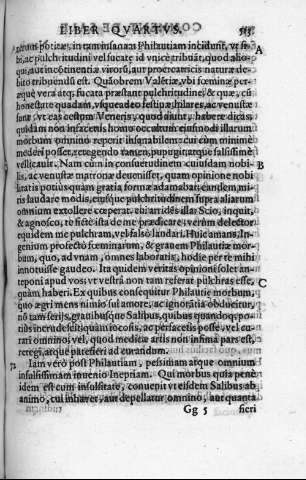 LIBER QVARTVS. 513
rerum potitæ, in tam insanam Philautiam incidunt, vt se A
bi, ac pulchritudini vel fucatæ id vnicè tribuāt, quod alio-
qui, aut incōtinentiæ virorū, aut procreatricis naturæ de-
bito tribuendū est. Quàobrem Valetiæ, vbi fœminæ per-
æquè vera atq; fucata præstant pulchritudine, & quæ, cū
honestate quadam, vsqueadeo festiuæ, hilares, ac venustæ
sunt, vt eas cestum Veneris, quod aiunt, habere dicas,
quidam non infacetus homo occultum eiusmodi illarum
morbum omnino reperit insanabilem: cui cum minimè
mederi posset, retegendo tamen, pupugit, atque salsissimè
vellicauit. Nam cùm in consuetudinem cuiusdam nobi- B
lis, ac venustæ matronæ deuenisset, quam opinione nobi
litatis potiùs quàm gratia formæ adamabat: eandem mi-
ris laudare modis, eiusque pulchritudinem supra aliarum
omnium extollere cœperat. cui arridēs illa: Scio, inquit,
& agnosco, te fictè ista de me prædicare: verùm delector
equidem me pulchram, vel falsò laudari. Huic amans, In-
genium profectò fœminarum, & grauem Philautiæ mor-
bum, quo, ad vnam, omnes laboratis, hodie per te mihi
innotuisse gaudeo. Ita quidem veritati opinionē solet an-
teponi apud vos: vt vestrâ non tam referat pulchras esse, C
quàm haberi. Ex quibus consequitur Philautiæ morbum,
quo ægri mens nimio sui amore, ac ignoratiâ obducitur,
nō tam serijs, grauibusque Salibus, quibus quandoq; po-
tiùs increbescit, quàm iocosis, ac perfacetis posse, vel cu-
rari omnino; vel, quod medicæ artis non infima pars est,
retegi, atque patefieri ad curandum.
71 Iam verò post Philautiam, pessimam atque omnium
insulsissimam inuenio Ineptiam. Qui morbus quia pene
idem est cum insulsitate, conuenit vt eisdem Salibus ab
animo, cui inhæret, aut depellatur omnino, aut quanta
Gg 5 fieri